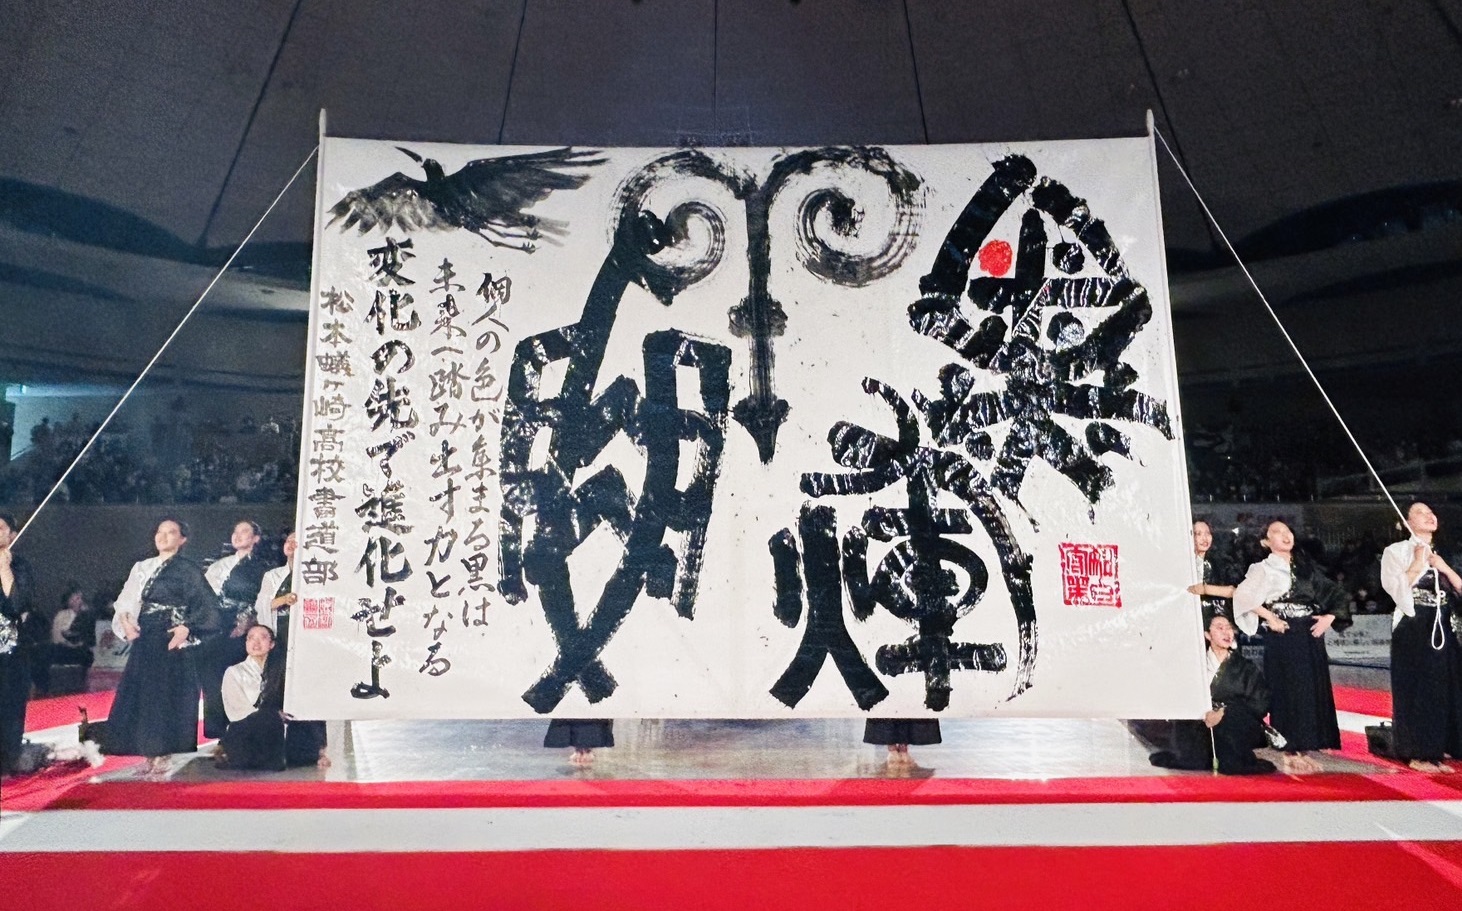 黒
翔
個人の色が集まる黒は
未来へ踏み出す力となる
変化の先で進化せよ
松本蟻ヶ崎高校書道部